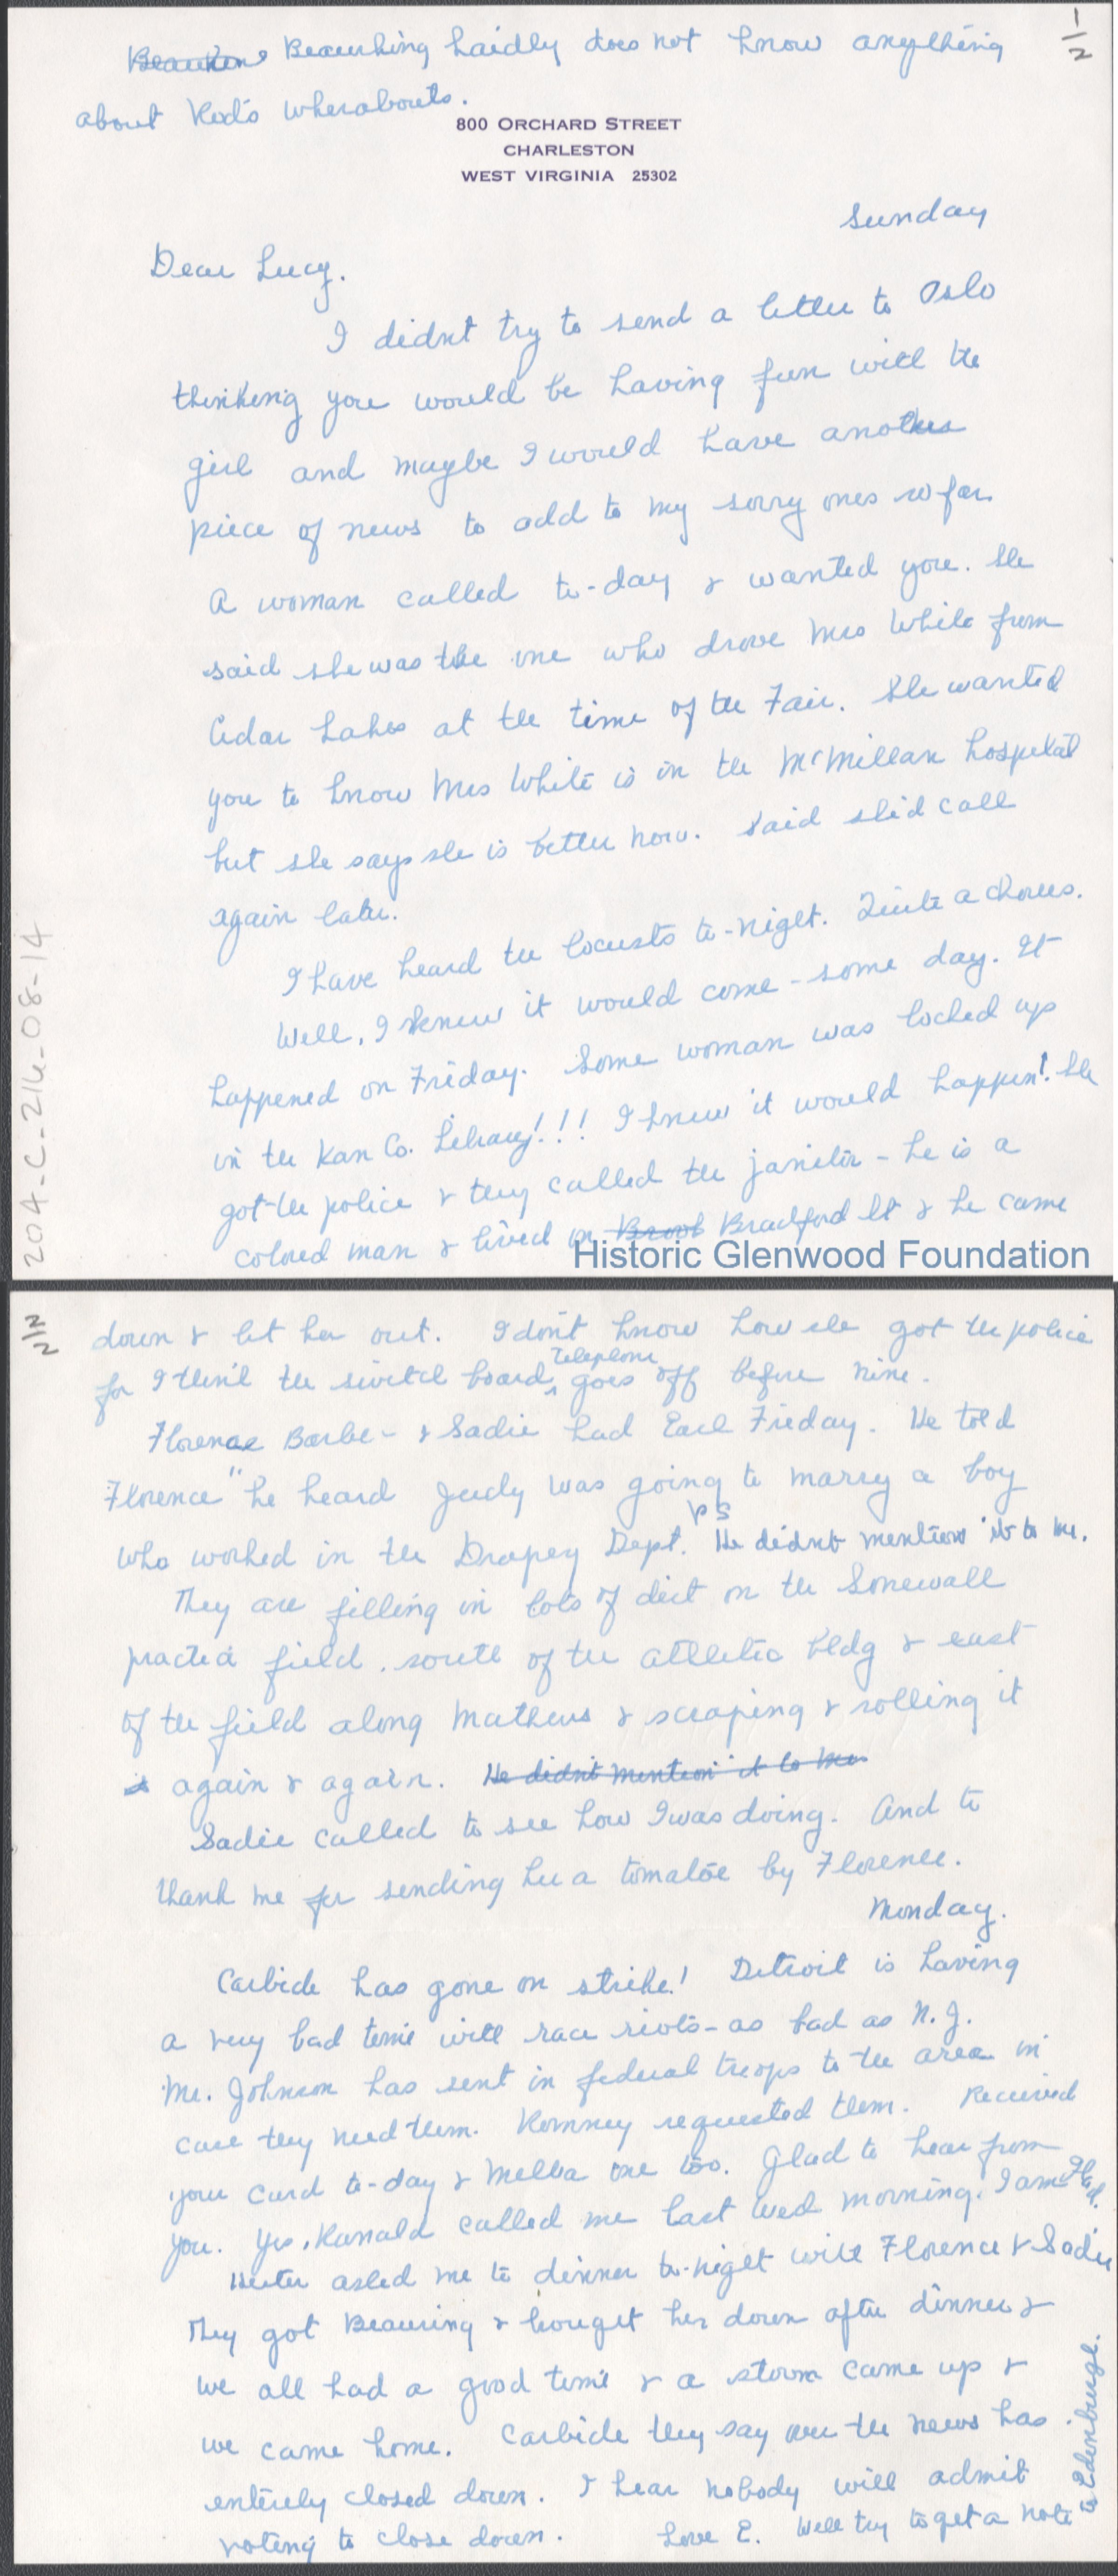 Beauking haidly does not know anything
about Rod's wherabouts.
1/2
800 ORCHARD STREET
CHARLESTON
WEST VIRGINIA 25302
Sunday
Dear Lucy.
I didn't try to send a letter to Oslo
thinking you would be having fun with the
girl and maybe I would have another
piece of news to add to my sorry ones so far.
A woman called to-day & wanted you. She
said she was the one who drove Mrs White from
Cedar Lakes at the time of the Fair. She wanted
you to know Mrs White is in the McMillan hospital
but she says she is better now. Said she'd call
again later.
I have heard the locusts to-night. Quite a chorus.
Well, I knew it would come - some day. It
happened on Friday. Some woman was locked up
in the Kan Co. Library!!! I knew it would happen! She
got the police & they called the janitor - he is a
colored man & lived on Broob Bradford St & he came
204-C-214-08-14
Historic Glenwood Foundation
2/2
down & let her out. I don't know how she got the police
for I think the switch board telephone goes off before nine.
Florence Barbe- & Sadie had Earl Friday. He told
Florence "he heard Judy was going to marry a boy
who worked in the Drapery Dept." PS He didn't mention it to me.
They are filling in lots of dirt on the Sonewall
practice field. south of the athletic bldg & east
of the field along Mathews & scraping & rolling it
again & again. He didn't mention it to me
Sadie called to see how I was doing. And to
thank me for sending her a tomatoe by Florence.
Monday.
Carbide has gone on strike! Detroit is having
a very bad time with race riots - as bad as N.J.
Mr. Johnson has sent in federal troops to the area in
case they need them. Romney requested them. Received
your card to-day & Melba one too. Glad to hear from
you. Yes, Ranald called me last Wed morning. I am glad.
Hester asked me to dinner to-night with Florence & Sadie
They got Beauring & brouget her down after dinner &
we all had a good time & a storm came up &
we came home. Carbide they say over the news has
entirely closed down. I hear nobody will admit
voting to close down. Love E. Will try to get a note
to Edenburge.